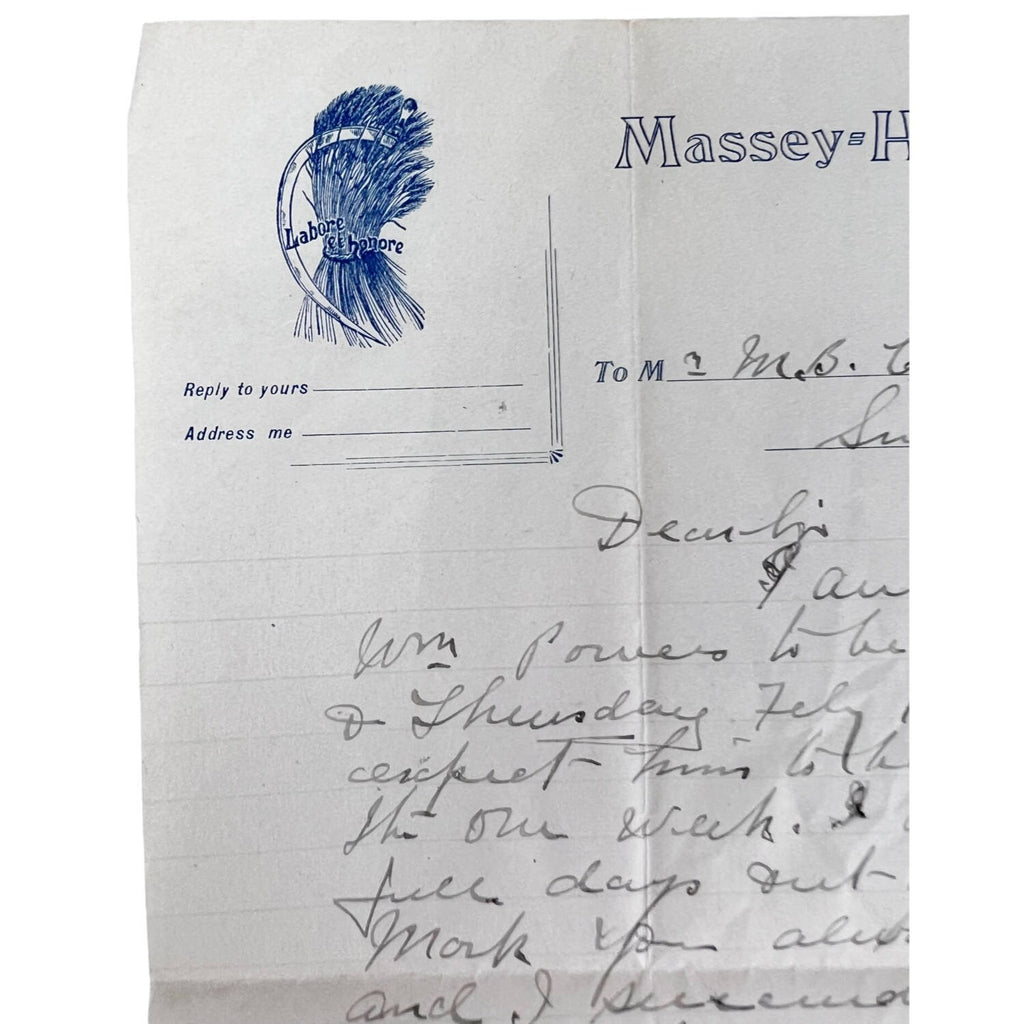 Labore
et honore
Massey=H
Reply to yours
Address me
To Mr M.B. C
Su
Dear Sir
I am
Wm Powers to be
& Thursday Feby
expect him to be
the one week. I
full days out
Mark you also
and I